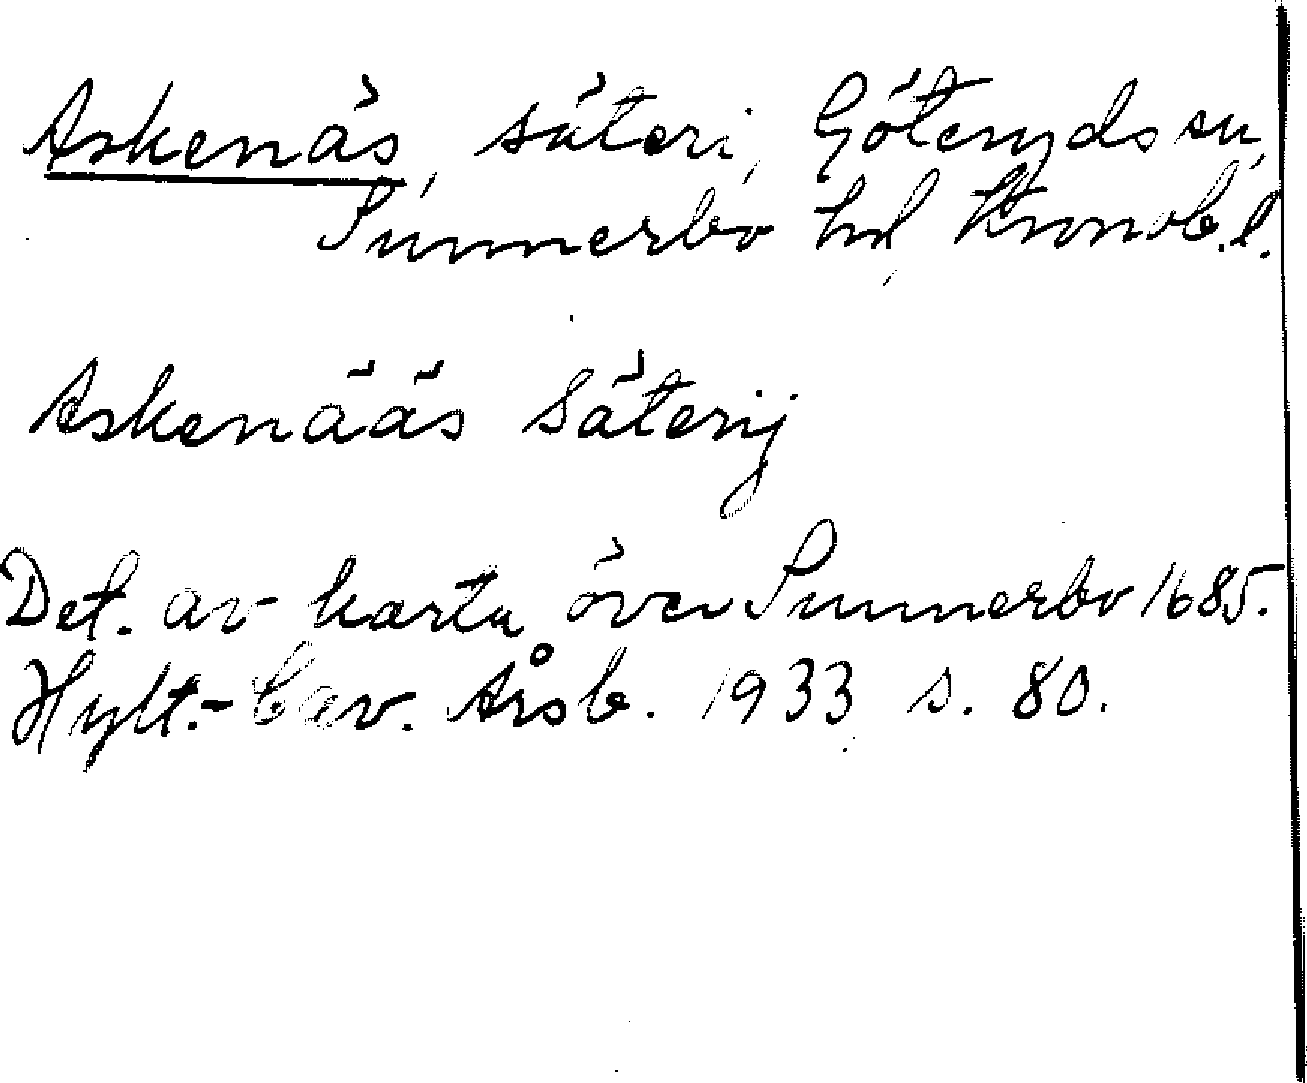 Askenäs, säteri, Göteryds sn,
Sunnerbo hd, Kronob. l.
Askenääs Säterij
Det. av karta över Sunnerbo 1685.
Hylt.-Cav. Årsb. 1933 s. 80.